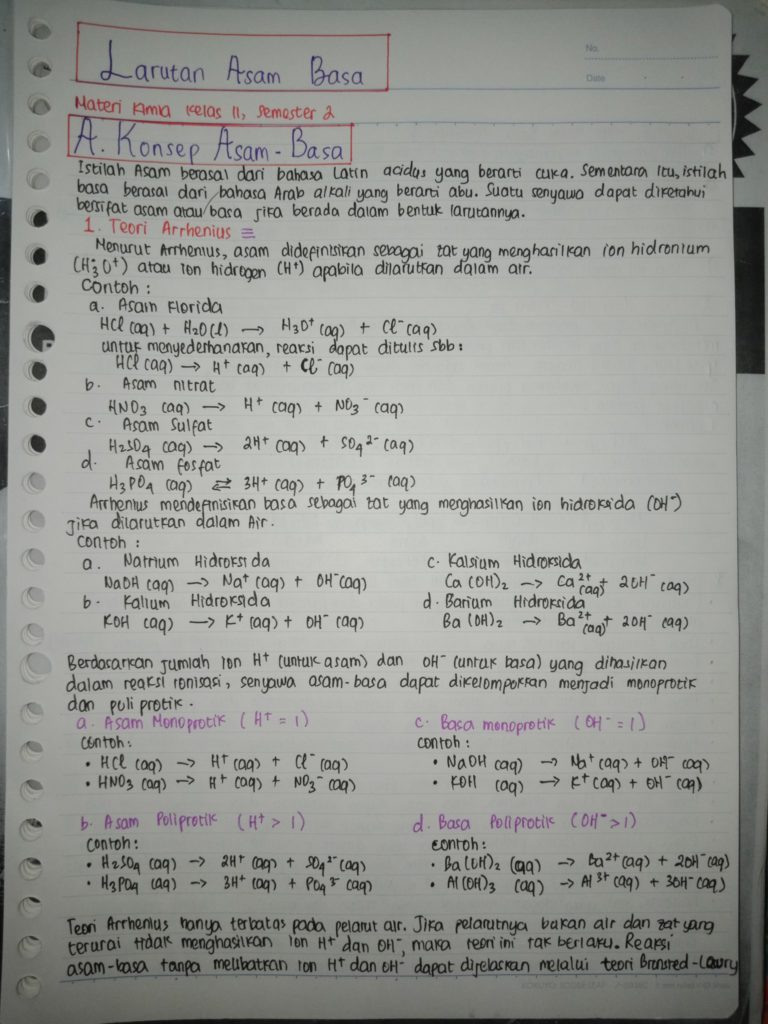 No.
Date
Larutan Asam Basa
Materi Kimia Kelas 11, Semester 2
A. Konsep Asam-Basa
Istilah Asam berasal dari bahasa Latin acidus yang berarti cuka. Sementara itu, istilah
basa berasal dari bahasa Arab alkali yang berarti abu. Suatu senyawa dapat diketahui
bersifat asam atau basa jika berada dalam bentuk larutannya.
1. Teori Arrhenius
Menurut Arrhenius, asam didefinisikan sebagai zat yang menghasilkan ion hidronium
(H3O⁺) atau ion hidrogen (H⁺) apabila dilarutkan dalam air.
Contoh :
a. Asam Klorida
HCl (aq) + H2O(l) → H3O⁺ (aq) + Cl⁻ (aq)
untuk menyederhanakan, reaksi dapat ditulis sbb:
HCl (aq) → H⁺ (aq) + Cl⁻ (aq)
b. Asam nitrat
HNO3 (aq) → H⁺ (aq) + NO3⁻ (aq)
c. Asam Sulfat
H2SO4 (aq) → 2H⁺ (aq) + SO4²⁻ (aq)
d. Asam fosfat
H3PO4 (aq) ⇄ 3H⁺ (aq) + PO4³⁻ (aq)
Arrhenius mendefinisikan basa sebagai zat yang menghasilkan ion hidroksida (OH⁻)
jika dilarutkan dalam Air.
Contoh :
a. Natrium Hidroksida
NaOH (aq) → Na⁺ (aq) + OH⁻ (aq)
b. Kalium Hidroksida
KOH (aq) → K⁺ (aq) + OH⁻ (aq)
c. Kalsium Hidroksida
Ca (OH)2 → Ca²⁺ (aq) + 2OH⁻ (aq)
d. Barium Hidroksida
Ba (OH)2 → Ba²⁺ (aq) + 2OH⁻ (aq)
Berdasarkan jumlah ion H⁺ (untuk asam) dan OH⁻ (untuk basa) yang dihasilkan
dalam reaksi ionisasi, senyawa asam-basa dapat dikelompokkan menjadi monoprotik
dan poli protik.
a. Asam Monoprotik ( H⁺ = 1)
Contoh:
• HCl (aq) → H⁺ (aq) + Cl⁻ (aq)
• HNO3 (aq) → H⁺ (aq) + NO3⁻ (aq)
c. Basa monoprotik (OH⁻ = 1)
contoh :
• NaOH (aq) → Na⁺ (aq) + OH⁻ (aq)
• KOH (aq) → K⁺ (aq) + OH⁻ (aq)
b. Asam Poliprotik (H⁺ > 1)
Contoh:
• H2SO4 (aq) → 2H⁺ (aq) + SO4²⁻ (aq)
• H3PO4 (aq) → 3H⁺ (aq) + PO4³⁻ (aq)
d. Basa Poliprotik (OH⁻ > 1)
contoh:
• Ba(OH)2 (aq) → Ba²⁺ (aq) + 2OH⁻ (aq)
• Al(OH)3 (aq) → Al³⁺ (aq) + 3OH⁻ (aq)
Teori Arrhenius hanya terbatas pada pelarut air. Jika pelarutnya bukan air dan zat yang
terurai tidak menghasilkan ion H⁺ dan OH⁻, maka teori ini tak berlaku. Reaksi
asam-basa tanpa melibatkan ion H⁺ dan OH⁻ dapat dijelaskan melalui teori Bronsted-Lowry